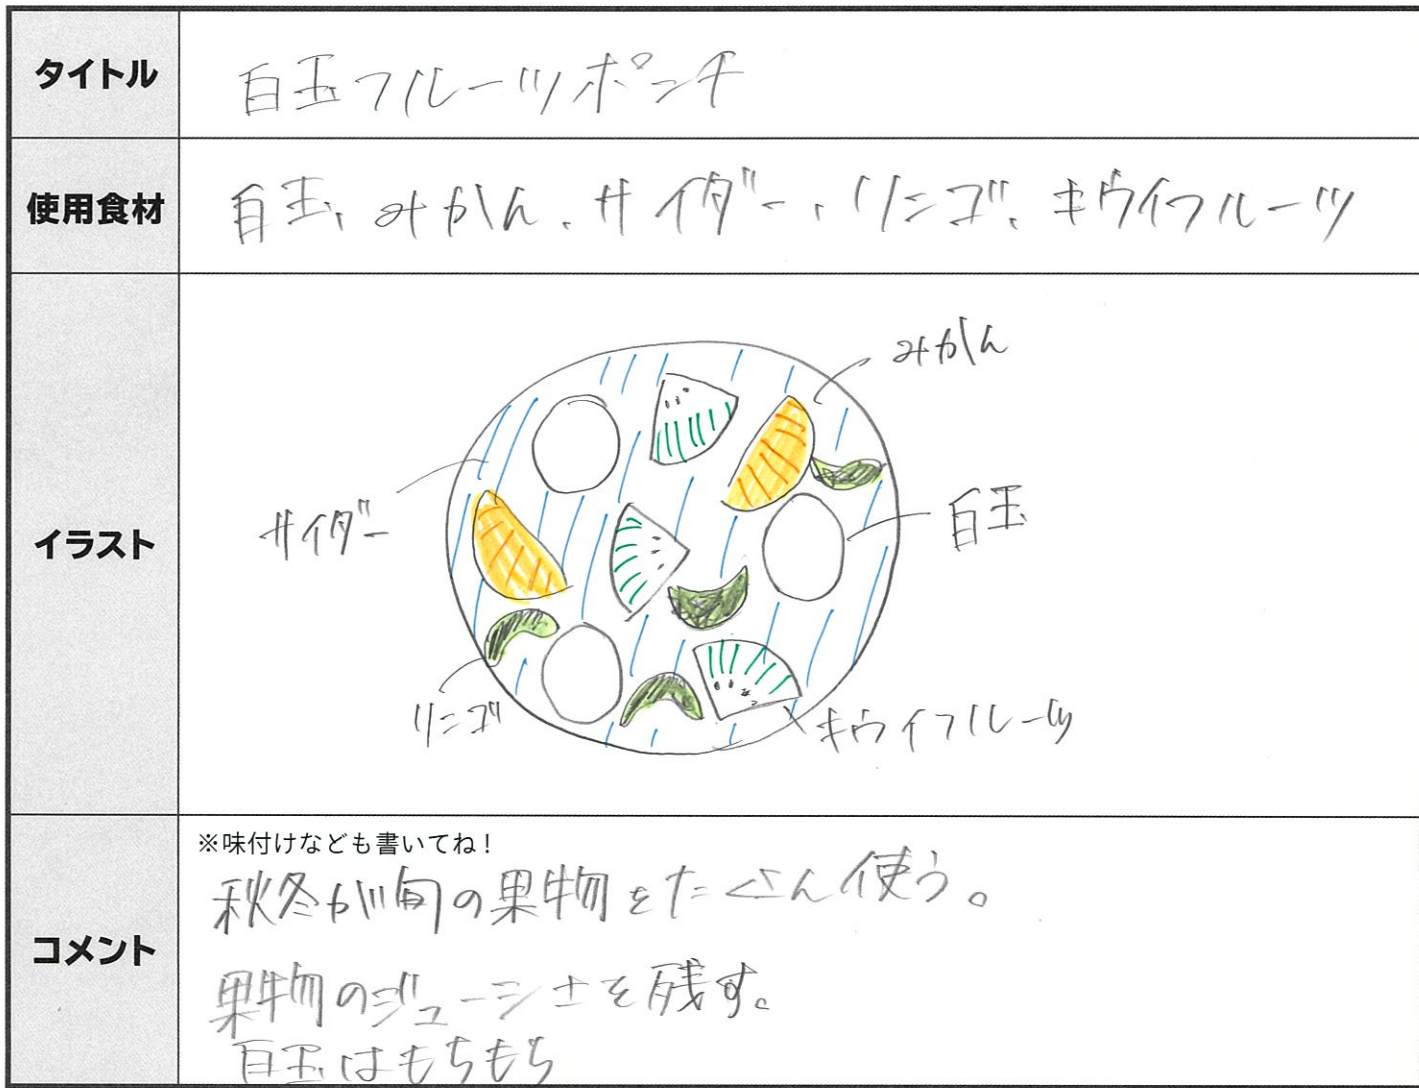 タイトル
白玉フルーツポンチ
使用食材
白玉、みかん、サイダー、リンゴ、キウイフルーツ
イラスト
みかん
サイダー
白玉
リンゴ
キウイフルーツ
コメント
※味付けなども書いてね！
秋冬が旬の果物をたくさん使う。
果物のジューシさを残す。
白玉はもちもち